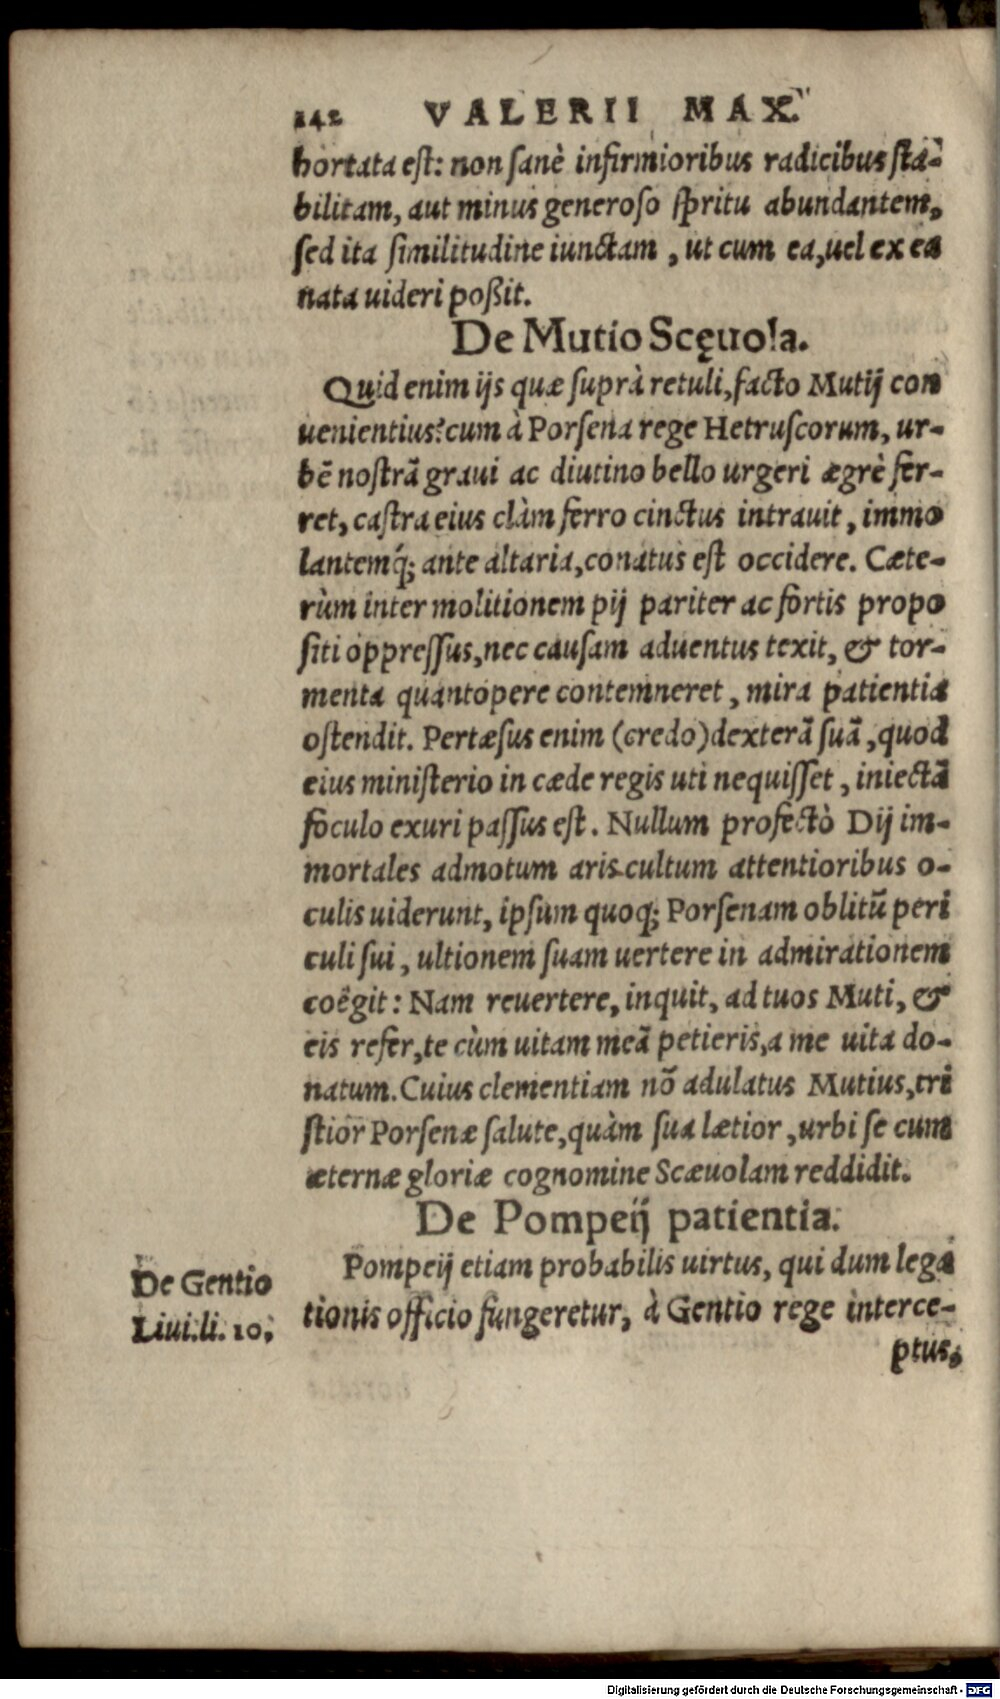 142 VALERII MAX.
hortata est: non sanè infirmioribus radicibus sta-
bilitam, aut minus generoso spritu abundantem,
sed ita similitudine iunctam, ut cum ea, uel ex ea
nata uideri poßit.
De Mutio Scęuola.
Quid enim ijs quæ suprà retuli, facto Mutij con
uenientius? cum à Porsena rege Hetruscorum, ur-
bē nostrā graui ac diutino bello urgeri ægrè fer-
ret, castra eius clàm ferro cinctus intrauit, immo
lantemq́; ante altaria, conatus est occidere. Cæte-
rùm inter molitionem pij pariter ac fortis propo
siti oppressus, nec causam aduentus texit, & tor-
menta quantopere contemneret, mira patientia
ostendit. Pertæsus enim (credo) dexterā suā, quod
eius ministerio in cæde regis uti nequisset, iniectā
foculo exuri passus est. Nullum profectò Dij im-
mortales admotum aris cultum attentioribus o-
culis uiderunt, ipsum quoq; Porsenam oblitū peri
culi sui, ultionem suam uertere in admirationem
coëgit: Nam reuertere, inquit, ad tuos Muti, &
eis refer, te cùm uitam meā petieris, a me uita do-
natum. Cuius clementiam nō adulatus Mutius, tri
stior Porsenæ salute, quàm sua lætior, urbi se cum
æternæ gloriæ cognomine Scæuolam reddidit.
De Pompeij patientia.
Pompeij etiam probabilis uirtus, qui dum lega
tionis officio fungeretur, à Gentio rege interce-
ptus,
De Gentio
Liui. li. 10.
Digitalisierung gefördert durch die Deutsche Forschungsgemeinschaft - DFG